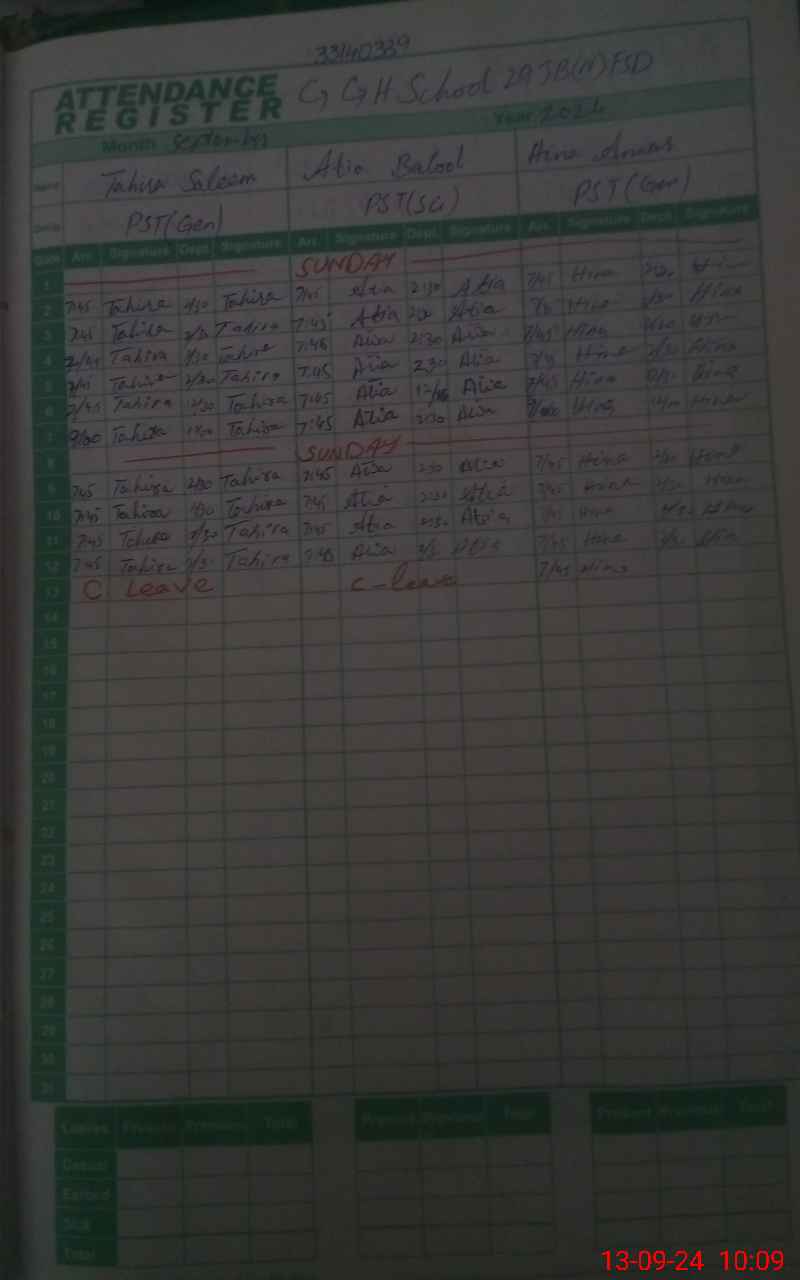 33140339
ATTENDANCE REGISTER
G G H School 29 JB(N) FSD
Month September Year 2024
Name Tahira Saleem Atia Batool Hina Anwar
Desig PST(Gen) PST(Sci) PST(Gen)
Date Arr. Signature Dept. Signature Arr. Signature Dept. Signature Arr. Signature Dept. Signature
1 SUNDAY
2 7:45 Tahira 2/30 Tahira 7/45 Atia 2:30 Atia 7/45 Hina Hina
3 7:45 Tahira 2/30 Tahira 7:45 Atia Atia Hina Hina
4 Tahira Tahira 7:45 Atia 2:30 Atia 7/45 Hina Hina
5 7/45 Tahira Tahira 7:45 Atia 2:30 Atia Hina 2/30 Hina
6 7/45 Tahira 12/30 Tahira 7:45 Atia Atia 7/45 Hina Hina
7 9/00 Tahira Tahira 7:45 Atia 2:30 Atia Hina Hina
8 SUNDAY
9 7:45 Tahira 2/30 Tahira 7:45 Atia 2:30 Atia 7/45 Hina 2/30 Hina
10 7:45 Tahira Tahira 7:45 Atia 2:30 Atia 7/45 Hina 2/30 Hina
11 7:45 Tahira 2/30 Tahira 7:45 Atia 2:30 Atia Hina Hina
12 7:45 Tahira 2/30 Tahira 7:45 Atia Atia 7/45 Hina Hina
13 C Leave C-leave 7/45 Hina
14
15
16
17
18
19
20
21
22
23
24
25
26
27
28
29
30
31
Leaves Present Previous Total Present Previous Total Present Previous Total
Casual
Earned
Sick
Total
13-09-24 10:09